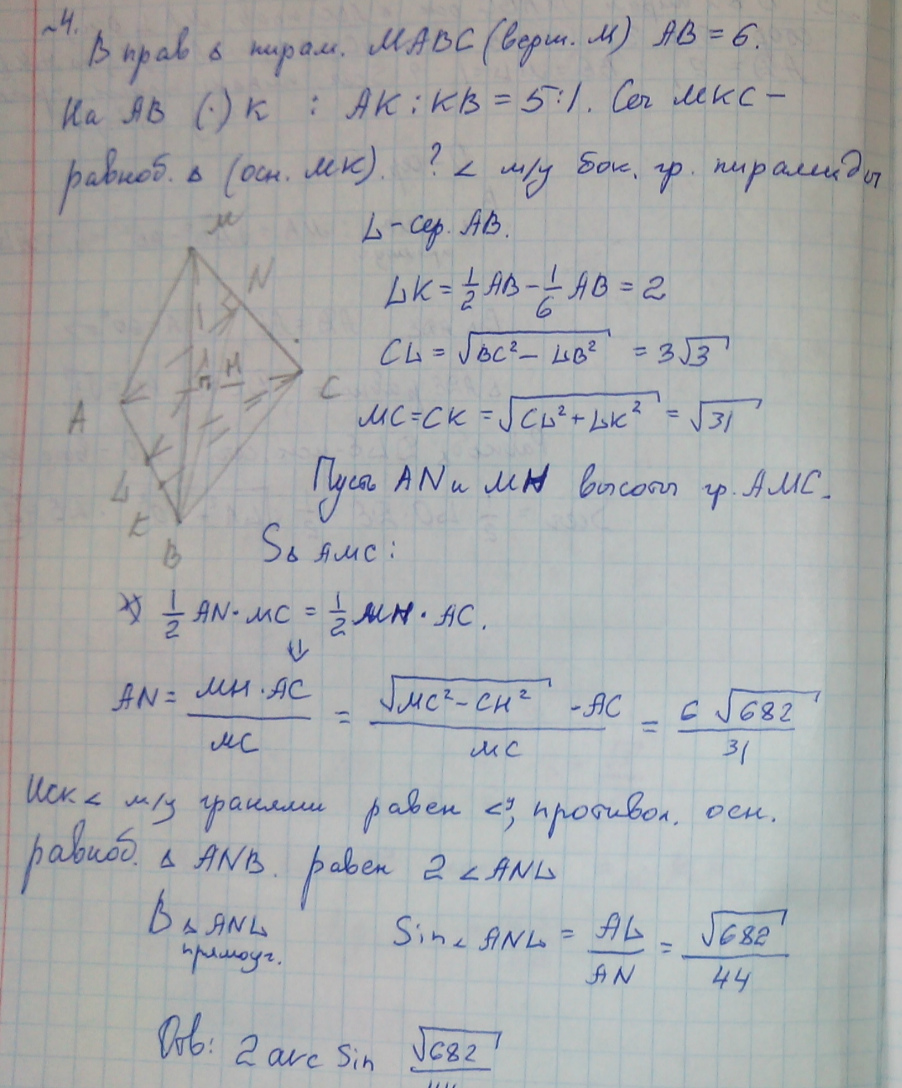 №4.
В прав ∆ пирам. МАВС (верш. М) АВ = 6.
На АВ (·) К : АК : КВ = 5:1. Сеч МКС –
равноб. ∆ (осн. МК). ? < м/у бок. гр. пирамиды
L – сер. АВ.
LK = 1/2 AB – 1/6 AB = 2
CL = √(BC² – LB²) = 3√3
MC = CK = √(CL² + LK²) = √31
Пусть AN и MH высоты гр. АМС.
S∆ AMC :
1/2 AN · MC = 1/2 MH · AC.
⇓
AN = MH · AC / MC = √(MC² – CH²) · AC / MC = 6√682 / 31
Иск < м/у гранями равен <у, противол. осн.
равноб. ∆ ANB. равен 2 < ANL
В ∆ ANL прямоуг. Sin < ANL = AL / AN = √682 / 44
Отв: 2 arc Sin √682 / 44
M
N
H
A
C
L
K
B